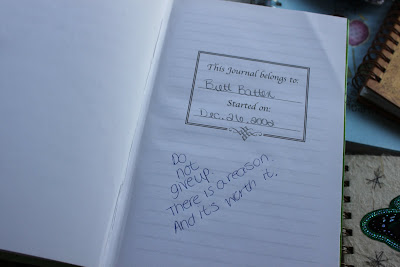 This Journal belongs to:
Brett Batten
Started on:
Dec. 26, 2002
Do
not
give up.
There is a reason.
And it's worth it.